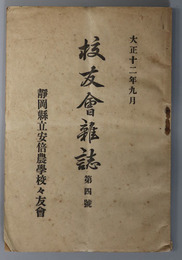 大正十二年九月
校友會雜誌 第四號
靜岡縣立安倍農學校々友會